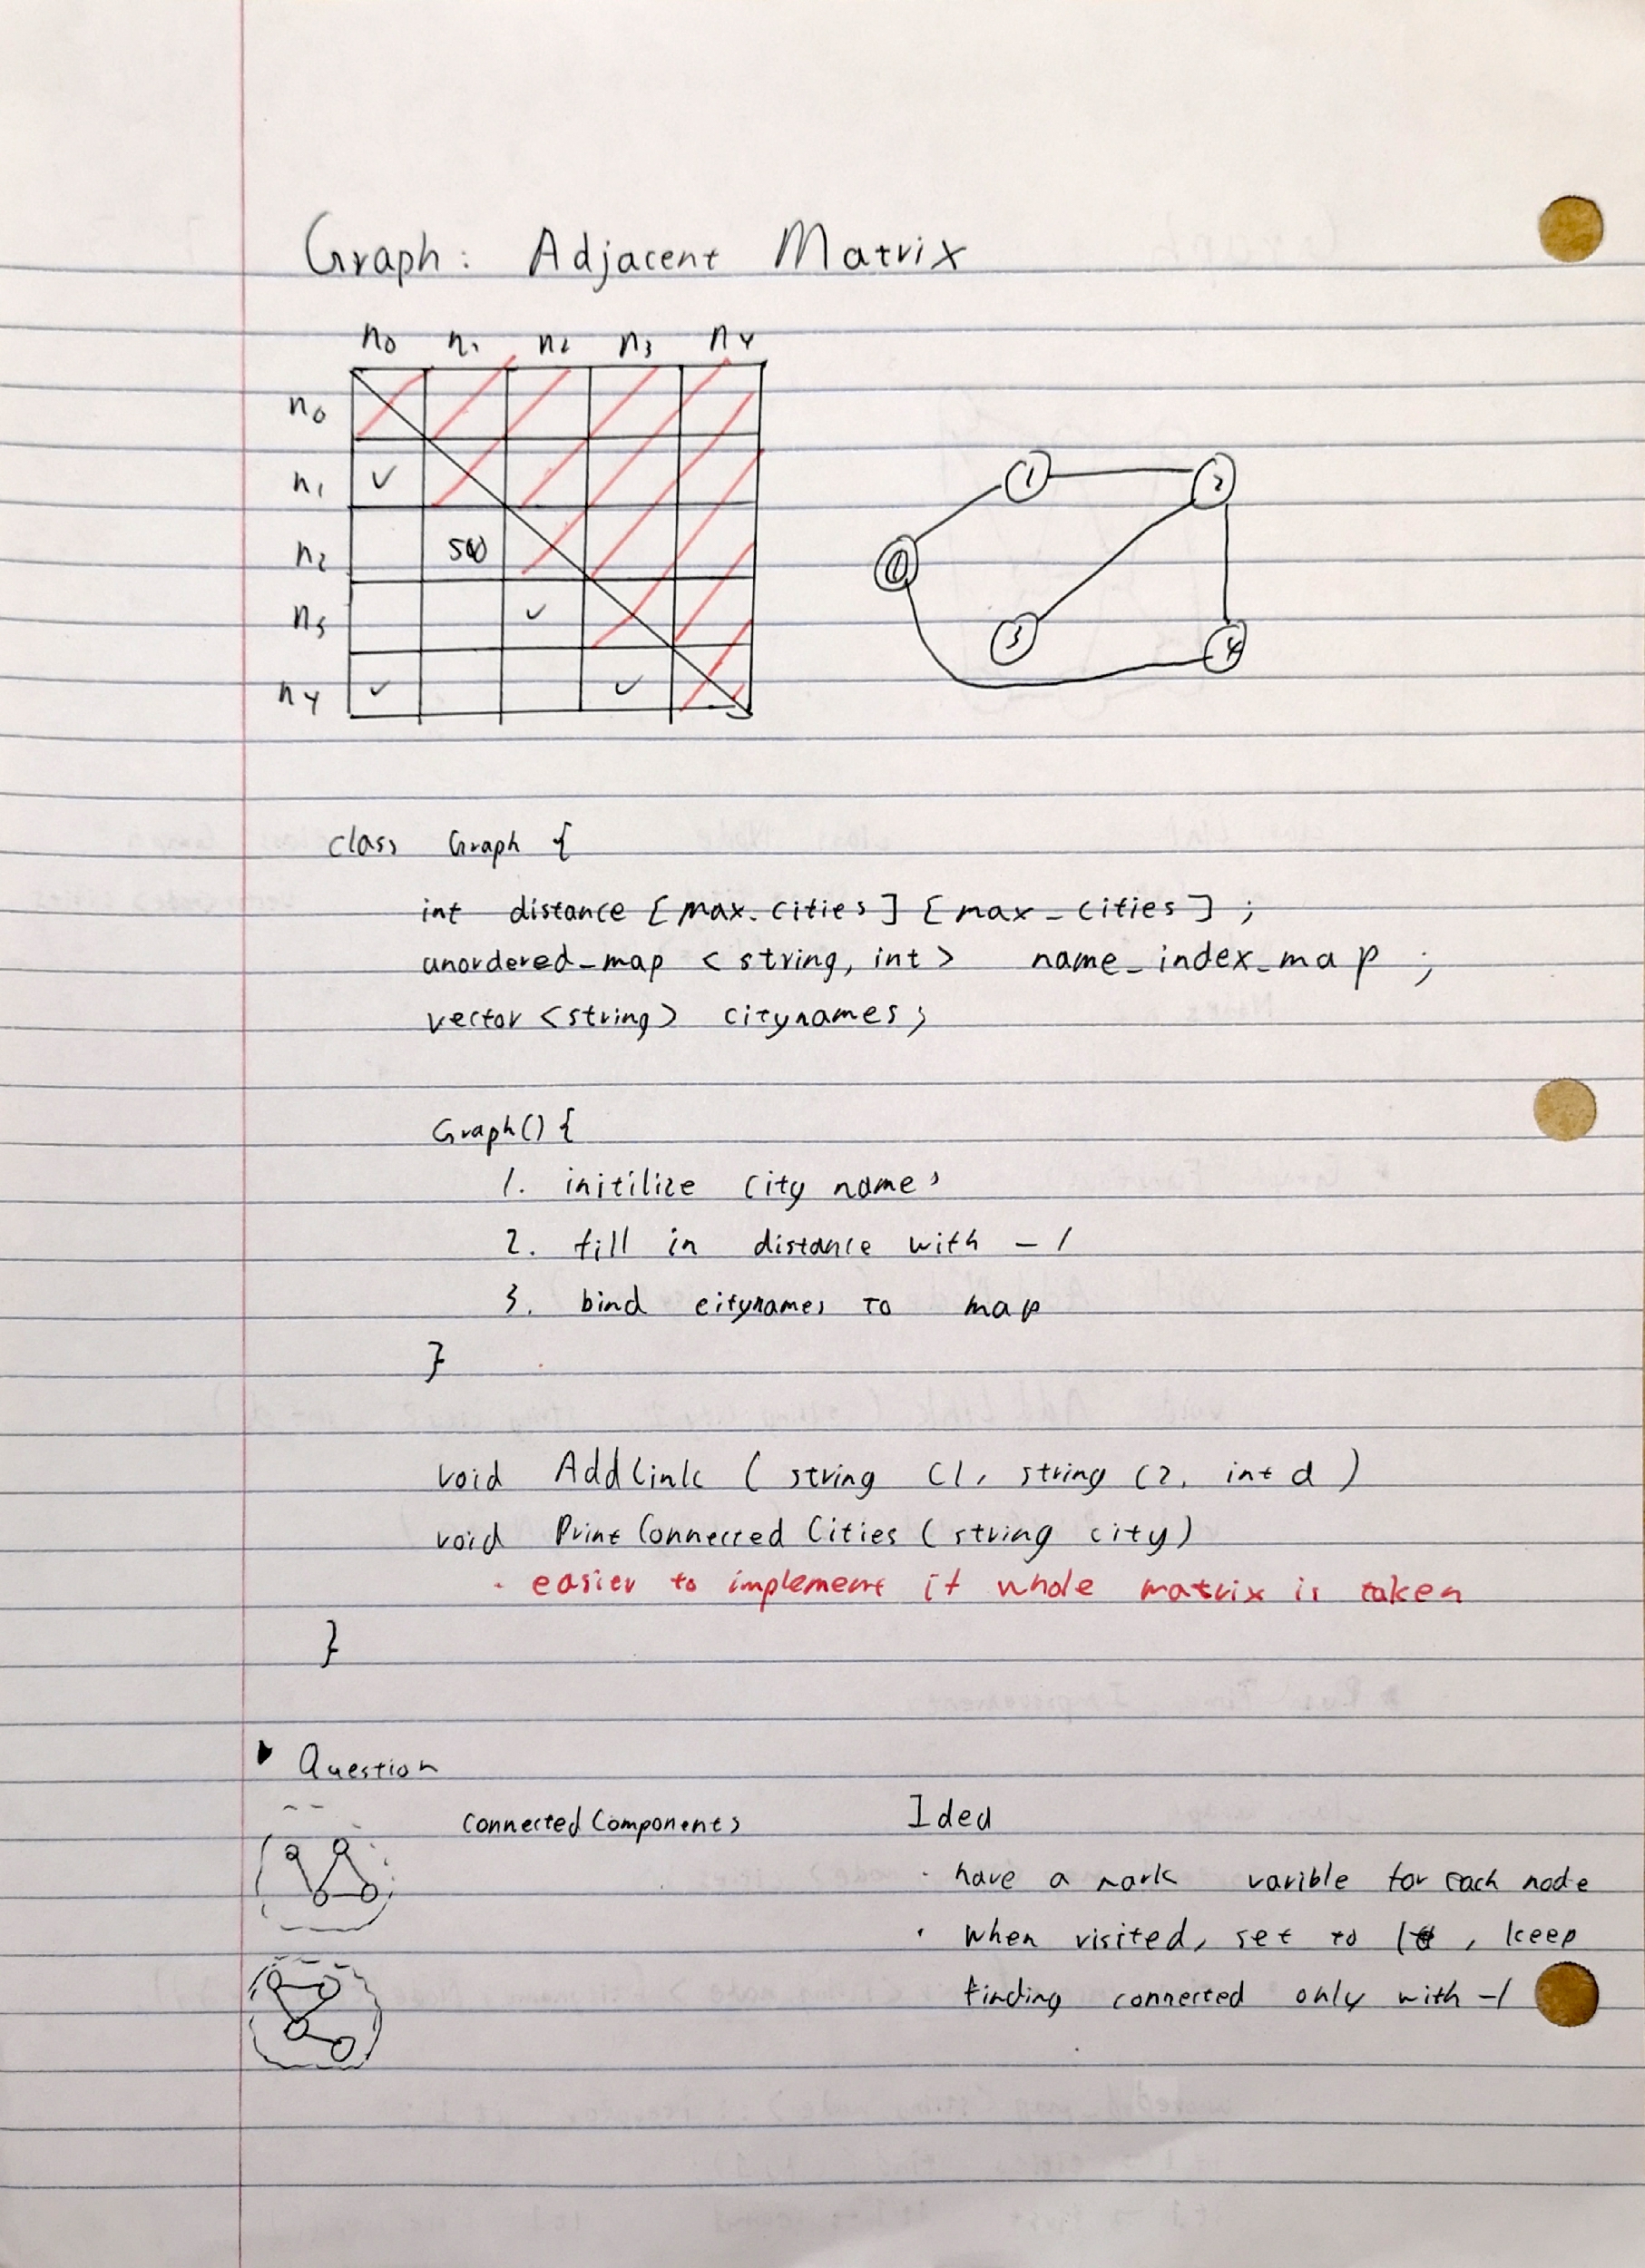 Graph: Adjacent Matrix
n0 n1 n2 n3 n4
n0
n1 ✓
n2 500
n3 ✓
n4 ✓ ✓
1 2
0
3 4
class Graph {
int distance [max_cities] [max_cities];
unordered_map <string, int> name_index_map;
vector <string> citynames;
Graph() {
1. initilize city names
2. fill in distance with -1
3. bind citynames to map
}
void AddLink (string C1, string C2, int d)
void PrintConnectedCities (string city)
· easier to implement if whole matrix is taken
}
Question
Connected Components
Idea
· have a mark varible for each node
· when visited, set to 1, keep
finding connected only with -1